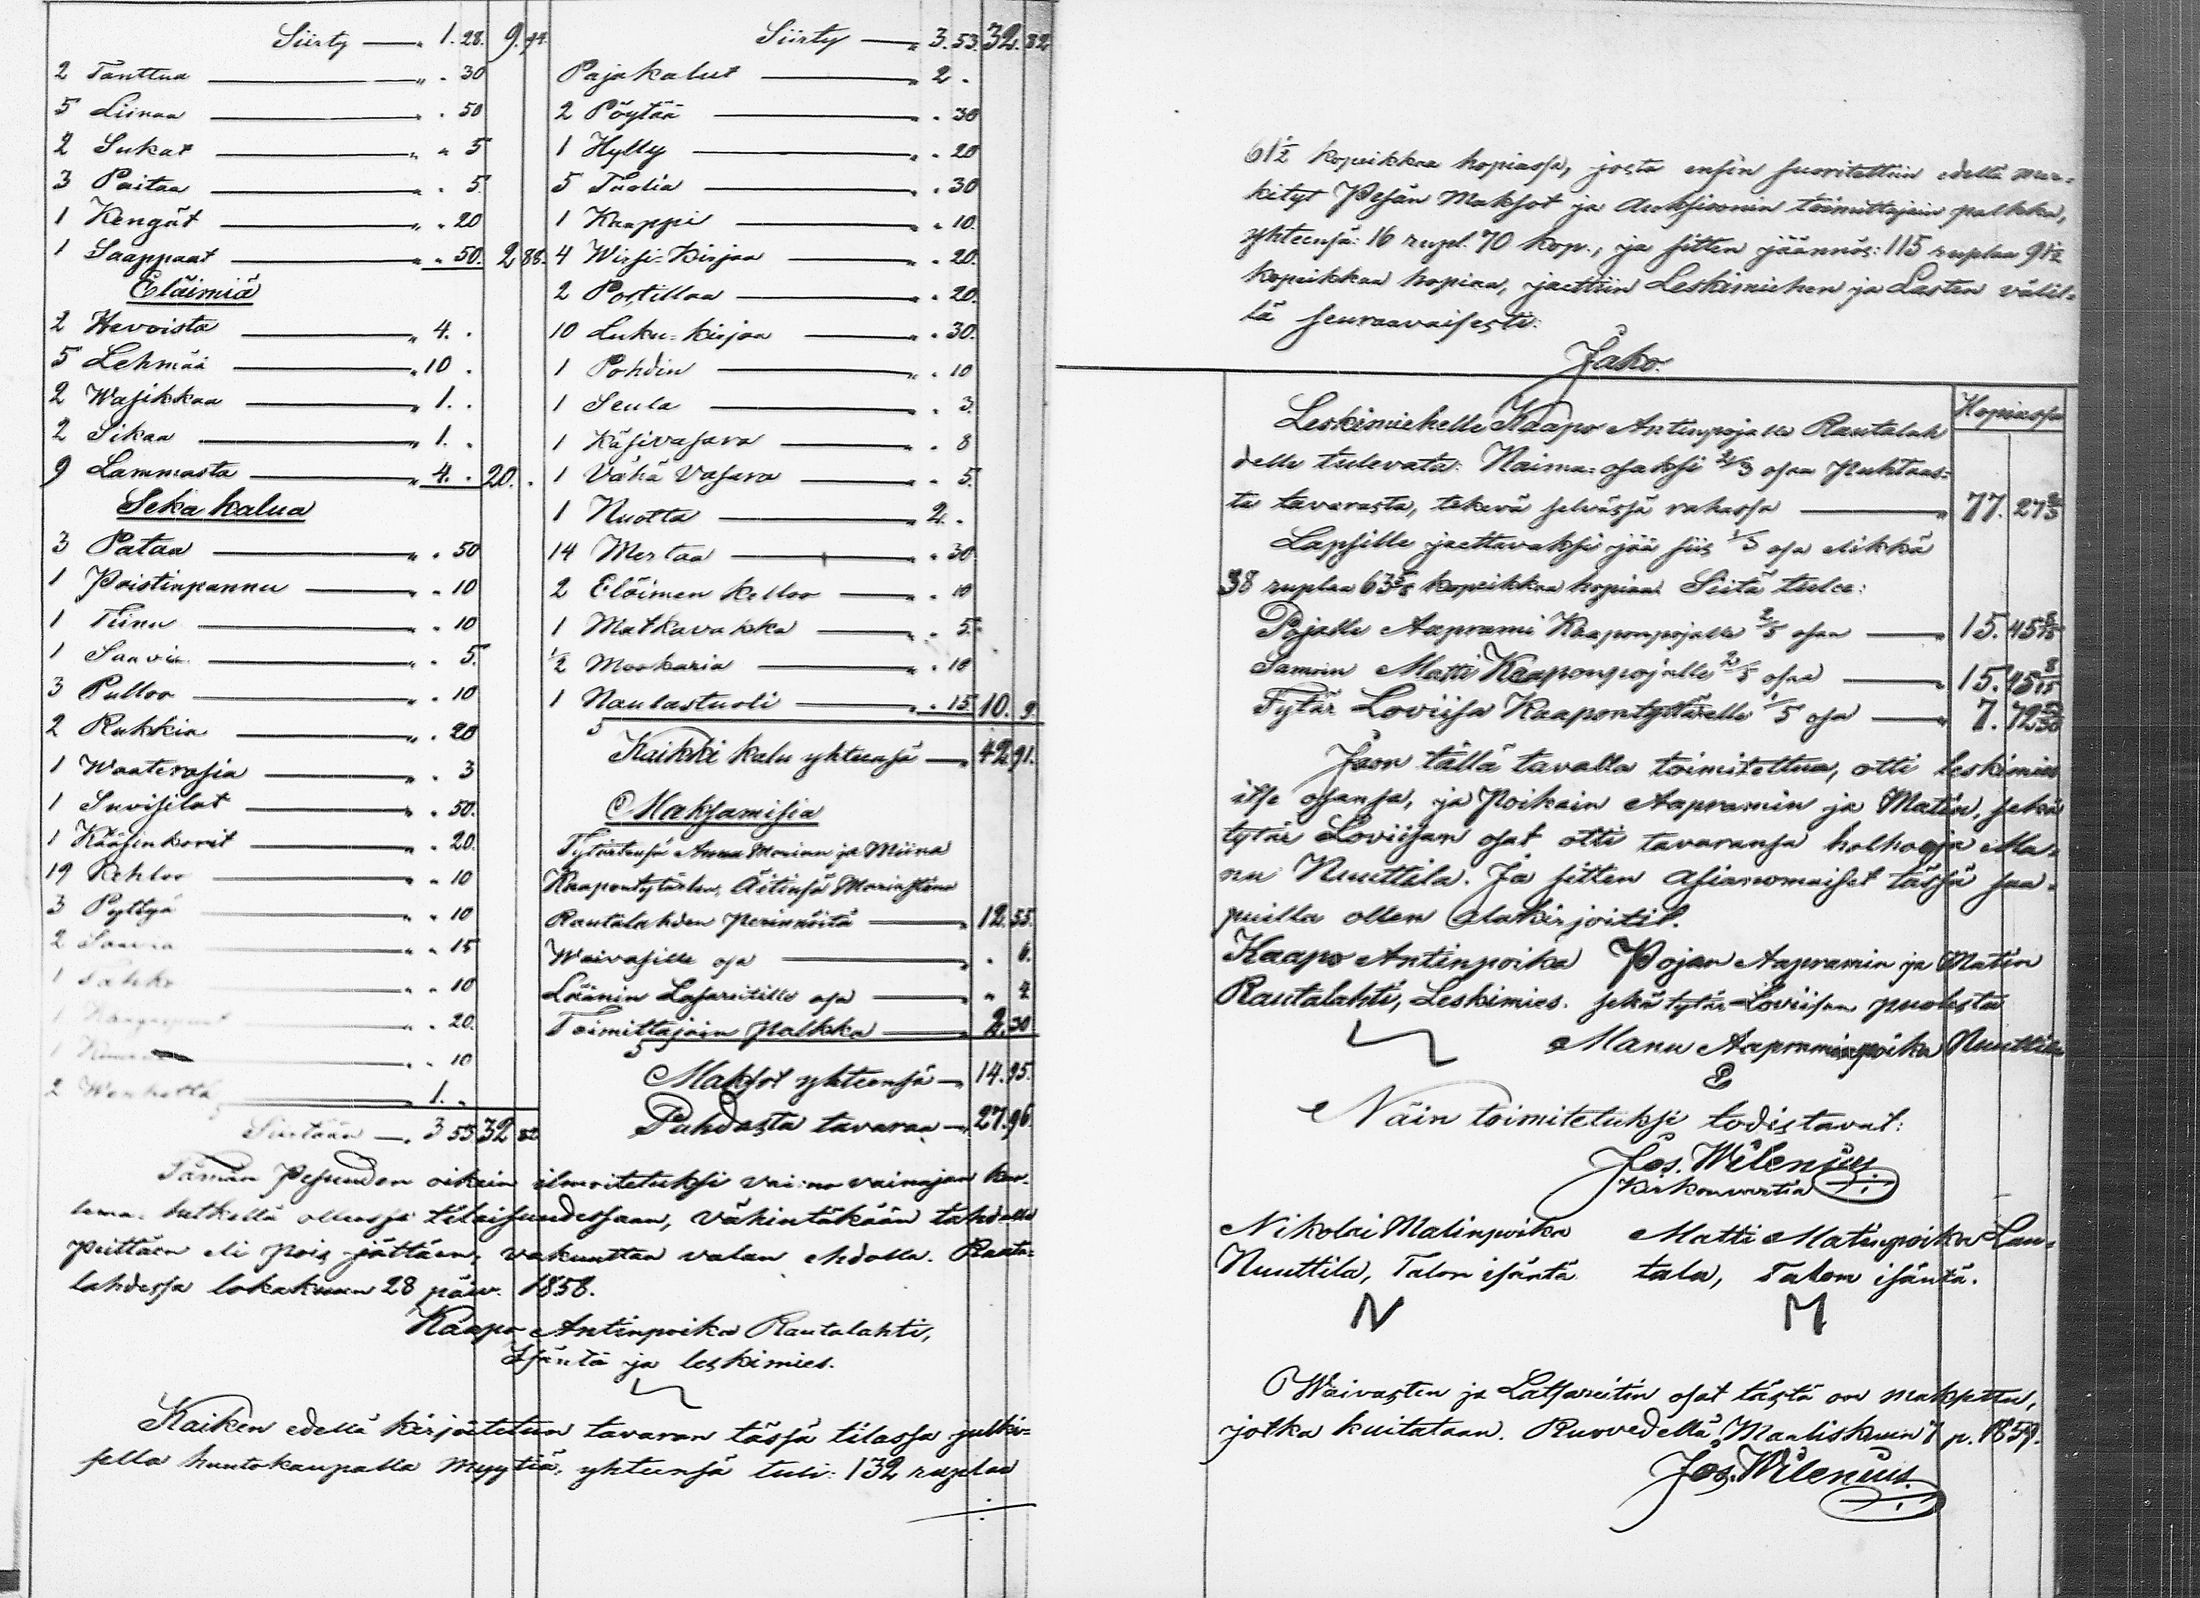 Siirty — " 1. 28. 9. 94.
2 Tanttua — " " 30
5 Liinaa — " " 50
2 Sukat — " " 5
3 Paitaa — " " 5.
1 Kengät — " " 20
1 Saappaat — " " 50. 2 88.
Eläimiä
2 Hevoista — " 4. "
5 Lehmää — " 10 "
2 Wasikkaa — " 1. "
2 Sikaa — " 1. "
9 Lammasta — " 4. " 20. "
Seka kalua
3 Pataa — " " 50
1 Paistinpannu — " " 10
1 Tiinu — " " 10
1 Saavin — " " 5.
3 Pulloo — " " 10
2 Rukkia — " " 20
1 Waaterasia — " " 3
1 Suvisilat — " " 50.
1 Kääsinkorit — " " 20.
19 Kehloo — " " 10
3 Pyttyä — " " 10
2 Saavia — " " 15
1 Sahko — " " 10
1 — " " 20.
1 — " " 10
2 — " 1. "
Siirtään — " 3 53 32 82
Siirty — " 3. 53. 32. 82
Pajakalut — " 2 "
2 Pöytää — " " 30
1 Hylly — " " 20
5 Tuolia — " " 30
1 Kaappi — " " 10.
4 Wirsi-Kirjaa — " " 20.
2 Postillaa — " " 20.
10 Luku-kirjaa — " " 30.
1 Pohdin — " " 10
1 Seula — " " 3.
1 Käsivasara — " " 8
1 Vähä Vasara — " " 5.
1 Nuotta — " 2. "
14 Mertaa — " " 30
2 Eläimen kelloo — " " 10
1 Matkavakka — " " 5.
1/2 Mookaria — " " 10
1 Naulastuoli — " " 15 10. 9.
Kaikki kalu yhteensä — " 42. 91.
Maksamisia
Tytärtensä Anna Marian ja Miina
Kaapontytärten, Äitinsä Mariastina
Rautalahden perinnöstä — " 12. 55.
Waivasille osa — " " 6.
Läänin Lasareitille osa — " " 4
Toimittajain palkka — 2. 30
Maksot yhteensä — " 14. 95.
Puhdasta tavaraa — " 27. 96
Tämän Pesuuden oikein ilmoitetuksi vaimo vainajan kuo-
lema-hetkellä ollessa tilaisuudessaan, vähintäkään tahdolla
peittäen eli pois jättäen, vakuuttaa valan ehdolla. Rauta-
lahdessa lokakuun 28 päiv. 1858.
Kaapo Antinpoika Rautalahti,
Isäntä ja leskimies.
Kaiken edellä kirjoitetun tavaran tässä tilassa julki-
sella huutokaupalla myytiä, yhteensä tuli: 132 ruplaa
61 1/2 kopeikkaa hopiassa, josta ensin suoritettiin edellä mer-
kityt Pesän Maksot ja Auksioonin toimittajain palkka,
yhteensä: 16 rupl. 70 kop., ja sitten jäännös: 115 ruplaa 91 1/2
kopeikkaa hopiaa, jaettiin Leskimiehen ja Lasten välil-
lä seuraavaisesti:
Jako.
Hopiassa
Leskimiehelle Kaapo Antinpojalle Rautalah
delle tulevata: Naima-osaksi 2/3 osaa Puhtaas-
ta tavarasta, tekevä selvässä rahassa — " 77. 27 2/3
Lapsille jaettavaksi jää siis 1/3 osa elikkä
38 ruplaa 63 5/6 kopeikkaa hopiaa. Siitä tulee:
Pojalle Aaprami Kaaponpojalle 2/5 osaa — " 15. 45 8/15
Samoin Matti Kaaponpojalle 2/5 osaa — " 15. 45 8/15
Tytär Loviisa Kaapontytärelle 1/5 osa — " 7. 72 23/30
Jaon tällä tavalla toimitettua, otti leskimies
itse osansa, ja Poikain Aapramin ja Matin, sekä
tytär Loviisan osat otti tavaransa holhooja Ma-
nu Nuuttila. Ja sitten asianomaiset tässä saa-
puilla ollen alakirjoitit.
Kaapo Antinpoika Pojan Aapramin ja Matin
Rautalahti, Leskimies. sekä tytär Loviisan puolesta
Manu Aapraminpoika Nuuttila
Näin toimitetuksi todistavat:
Jos. Wilenius
Kirkonvartia
Nikolai Matinpoika Matti Matinpoika Lau-
Nuuttila, Talon isäntä. tala, Talon isäntä.
N M
Waivasten ja Latsareitin osat tästä on maksettu,
jotka kuitataan. Ruovedellä Maaliskuun 7 p. 1859.
Jos. Wilenius.